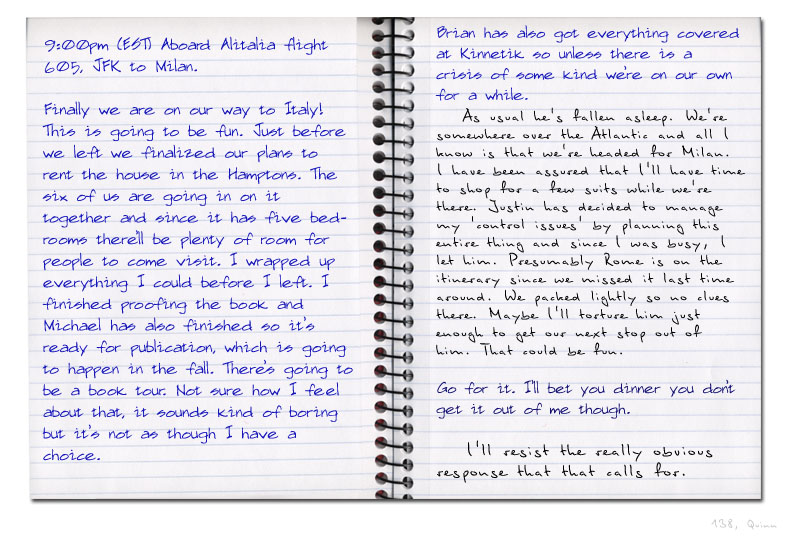 9:00pm (EST) Aboard Alitalia flight
605, JFK to Milan.
Finally we are on our way to Italy!
This is going to be fun. Just before
we left we finalized our plans to
rent the house in the Hamptons. The
six of us are going in on it
together and since it has five bed-
rooms there'll be plenty of room for
people to come visit. I wrapped up
everything I could before I left. I
finished proofing the book and
Michael has also finished so it's
ready for publication, which is going
to happen in the fall. There's going to
be a book tour. Not sure how I feel
about that, it sounds kind of boring
but it's not as though I have a
choice.
Brian has also got everything covered
at Kinnetik so unless there is a
crisis of some kind we're on our own
for a while.
As usual he's fallen asleep. We're
somewhere over the Atlantic and all I
know is that we're headed for Milan.
I have been assured that I'll have time
to shop for a few suits while we're
there. Justin has decided to manage
my 'control issues' by planning this
entire thing and since I was busy, I
let him. Presumably Rome is on the
itinerary since we missed it last time
around. We packed lightly so no clues
there. Maybe I'll torture him just
enough to get our next stop out of
him. That could be fun.
Go for it. I'll bet you dinner you don't
get it out of me though.
I'll resist the really obvious
response that that calls for.
138, Quinn